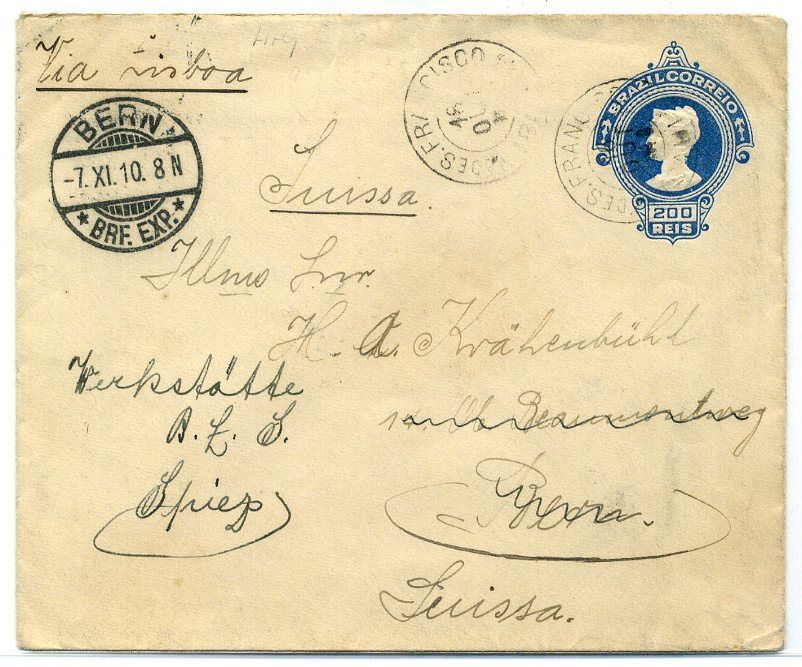 Via Lisboa
BRAZIL CORREIO
200
REIS
DES. FRANCISCO
DES. FRANC
BERN
-7. XI. 10. 8 N
* BRF. EXP. *
Suissa.
Illmo Snr.
H. A. Krähenbühl
Beaumontweg
Werkstätte
B. L. S.
Spiez
Bern.
Suissa.